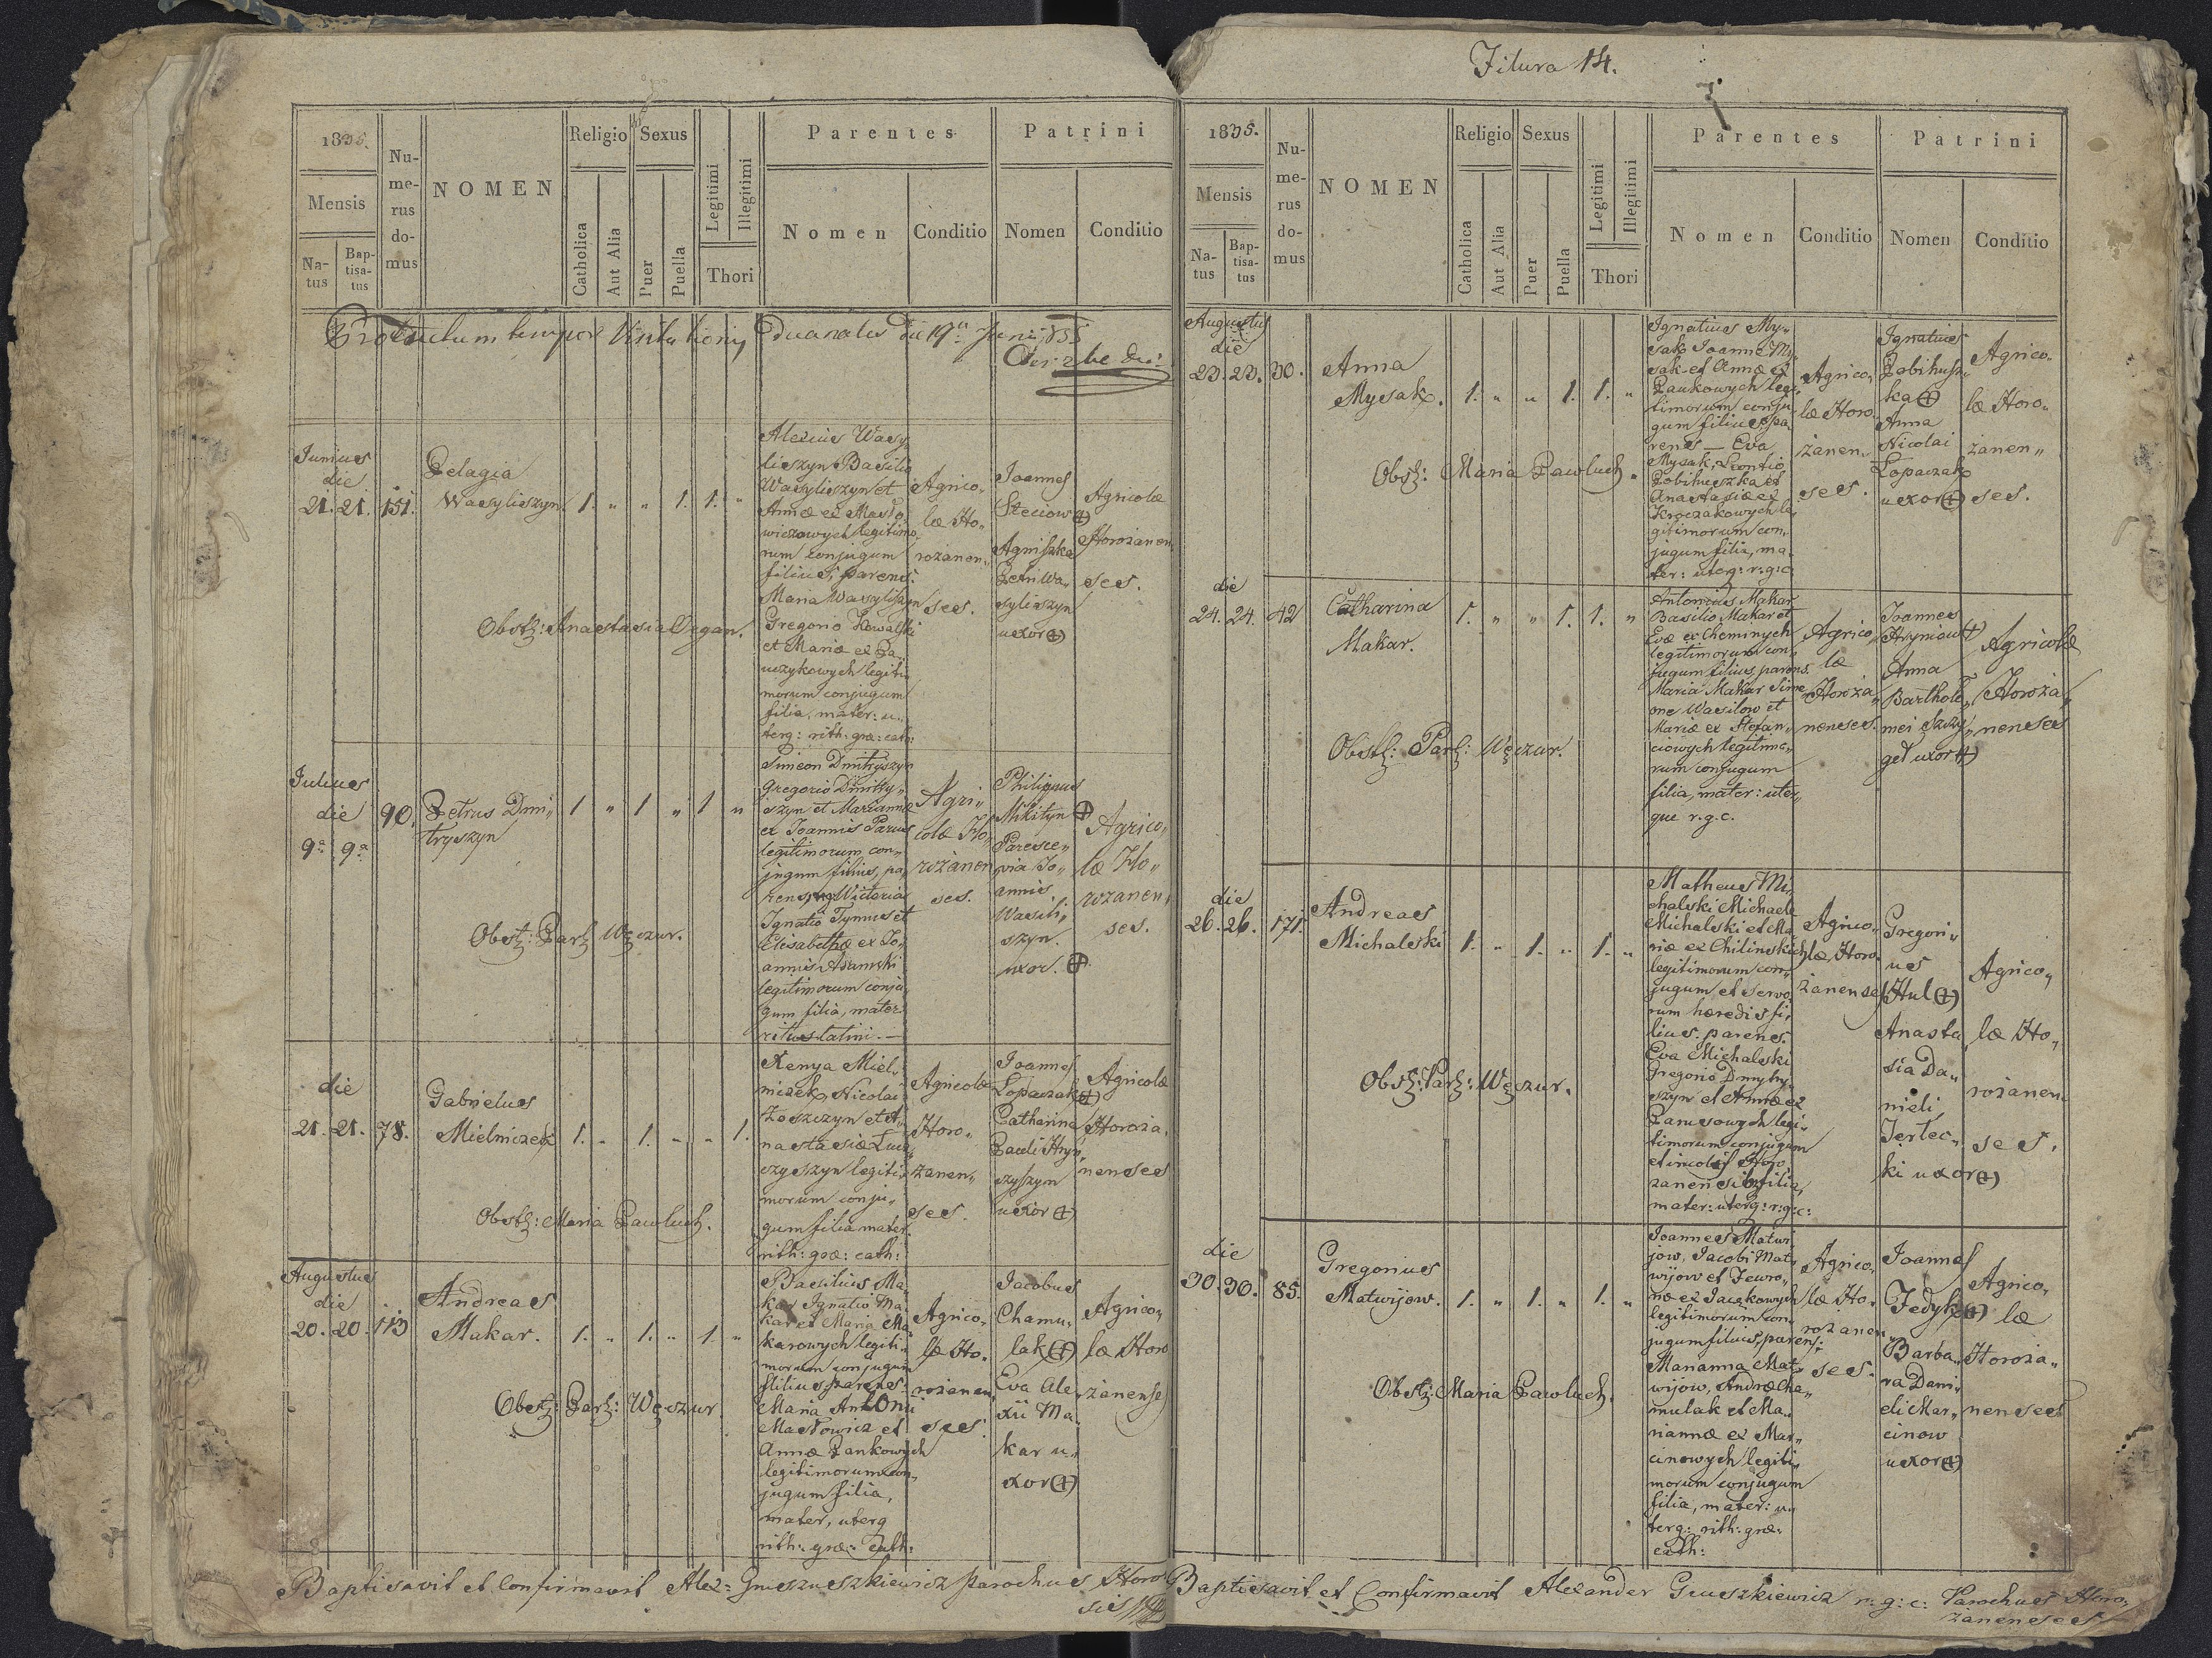 Filura 14.
1835.
Mensis
Natus
Baptisatus
Numerus domus
NOMEN
Religio
Catholica
Aut Alia
Sexus
Puer
Puella
Legitimi
Illegitimi
Thori
Parentes
Nomen
Conditio
Patrini
Nomen
Conditio
die 19a Junii 835
Junius
die
21. 21. 151.
Pelagia
Wasyliszyn. 1. " " 1. 1. "
Alexius Wasy„
liszyn Basilio
Wasyliszyn et
Annæ ex
wiczowych legitimo„
rum conjugum
filius, parens.
Maria Wasyliszyn
Gregorio Kowalski
et Mariæ ex Pa„
uczykowych legiti„
morum conjugum
filia, mater: u„
terq: rith: græ: cath:
Agrico„
læ Ho„
rożanen„
ses.
Joannes
Steciow (+)
Agniszka
Petri Wa„
syliszyn
uxor (+)
Agricolæ
Horożanen„
ses.
Obstz: Anastasia Organ.
Julius
die
9a 9a 90.
Petrus Dmi„
tryszyn
1 " 1 " 1 "
Simeon Dmitryszyn
Gregorio Dmitry„
szyn et Marianna
ex Joannis Parus
legitimorum con„
jugum filius, pa„
rens, Victoria
Ignatio Tymus et
Elisabethæ ex Jo„
annis Adamski
legitimorum conju„
gum filia, mater
ritus latini.—
Agri„
colæ Ho„
rożanen
ses.
Philippus
Mikityn (+)
Parasce„
via Jo„
annis
Wasili„
szyn.
uxor. (+)
Agrico„
læ Ho„
rożanen„
ses.
Obstz: Parz Węczur.
die
21. 21. 78.
Gabrielus
Mielniczek 1. " 1. " " 1.
Xenya Miel„
niczek, Nicolai
Koszczyn et A„
nastasiæ Luca
szyszyn legiti„
morum conju„
gum filia mater.
rith: græ: cath:
Agricolæ
Horo„
żanen„
ses.
Joannes
Łopaczak (+)
Catharina
Pauli Hry„
szyszyn
uxor (+)
Agricolæ
Horoża„
nenses
Obstz: Maria Pawluch.
Augustus
die
20. 20. 113
Andreas
Makar. 1. " 1. " 1. "
Basilius Ma„
kar Ignatio Ma„
kar et Maria Ma„
karowych legiti„
morum conjugum
filius, parens.
Maria Antonii
Mastowicz et
Annæ Pankowych
legitimorum con„
jugum filia,
mater, uterq
rith: græ: Cath:
Agrico„
læ Ho„
rożanen„
ses.
Jacobus
Chamu„
lak (+)
Eva Ale„
xii Ma„
kar u„
xor (+)
Agrico„
læ Horo
żanenses
Obstz: Parz: Węczur.
Baptisavit et Confirmavit Alex: Gruszuszkiewicz Parochus Horo
1835.
Mensis
Natus
Baptisatus
Numerus domus
NOMEN
Religio
Catholica
Aut Alia
Sexus
Puer
Puella
Legitimi
Illegitimi
Thori
Parentes
Nomen
Conditio
Patrini
Nomen
Conditio
Augustus
die
23. 23. 30.
Anna
Mysak. 1. " " 1. 1. "
Ignatius My„
sak Joanne My„
sak et Annæ ex
Pankowych legi„
timorum conju„
gum filius, pa„
rens — Eva
Mysak, Leontio
Pobihuszka et
Anastasiæ ex
Kroczakowych le„
gitimorum con„
jugum filia, ma„
ter: uterq: r: g: c:
Agrico„
læ Horo„
żanen„
ses.
Ignatius
Pobihusz„
ka (+)
Anna
Nicolai
Łopaczak
uxor (+)
Agrico„
læ Horo„
żanen„
ses.
Obstz: Maria Pawluch.
die
24. 24. 42
Catharina
Makar.
1. " " 1. 1. "
Antonius Makar
Basilio Makar et
Evæ ex Cheminych
legitimorum con„
jugum filius, parens.
Maria Makar Sime„
one Wasilow et
Mariæ ex Stefan„
ciowych legitimo„
rum conjugum
filia, mater: uter„
que r. g. c.
Agrico„
læ
Horoża„
nenses.
Joannes
Hryniow (+)
Anna
Bartholo„
mei Szczy„
gel uxor (+)
Agricolæ
Horoża„
nenses
Obstz: Parz: Węczur.
die
26. 26. 171.
Andreas
Michalski 1. " 1. " 1. "
Matheus Mi„
chalski Michaele
Michalski et Ma„
riæ ex Chilinskich
legitimorum con„
jugum et servo„
rum hæredis fi„
lius. parens.
Eva Michalski
Gregorio Dmytry„
szyn et Annæ ex
Panusowych legi„
timorum conjugum
et incolis Horo„
żanensib filia,
mater: uterq: r: g: c:
Agrico„
læ Horo„
żanenses
Gregori„
us
Hul (+)
Anasta„
sia Da„
nieli
Jertec„
ki uxor (+)
Agrico„
læ Ho„
rożanen„
ses.
Obstz: Parz: Węczur.
die
30. 30. 85.
Gregorius
Matwijow. 1. " 1. " 1. "
Joannes Matwi
jow, Jacobi Mat„
wijow et Fewro„
næ ex Jackowych
legitimorum con„
jugum filius, parens.
Marianna Mat„
wijow, Andræ Cha„
mulak et Ma„
riannæ ex Mar„
cinowych legiti„
morum conjugum
filia, mater: u„
terq: rith: græ:
cath:
Agrico„
læ Ho„
rożanen„
ses.
Joannes
Fedyk (+)
Barba„
ra Dani„
eli Mar„
cinow
uxor (+)
Agrico„
læ
Horoża„
nenses
Obstz: Maria Pawluch.
Baptisavit et Confirmavit Alexander Gruszkiewicz r: g: c: Parochus Horo„
żanenses